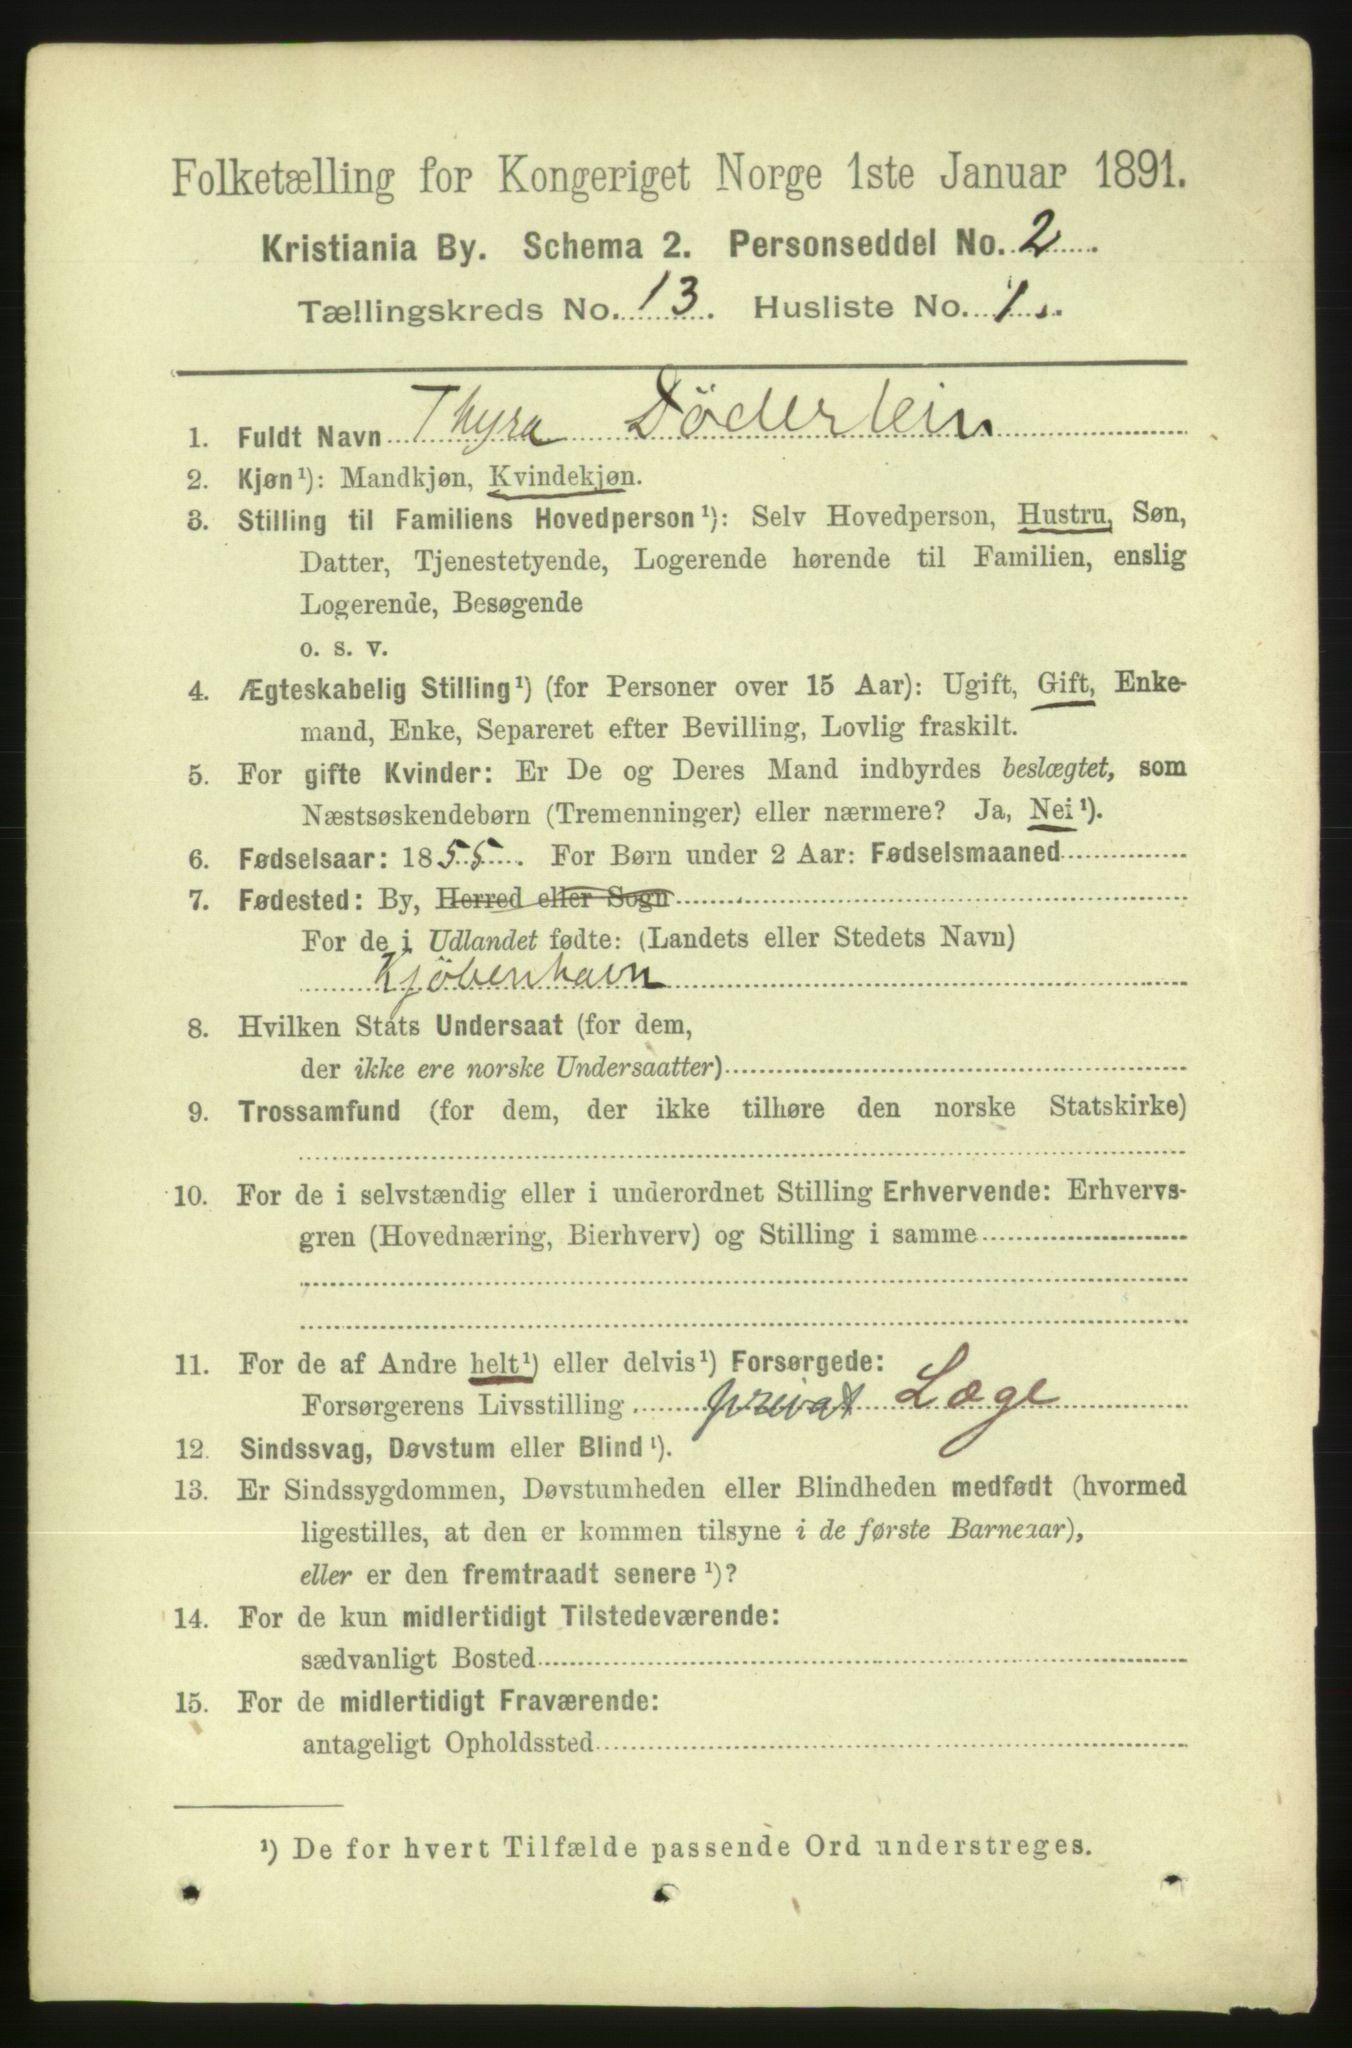 Folketælling for Kongeriget Norge 1ste Januar 1891.
Kristiania By. Schema 2. Personseddel No. 2
Tællingskreds No. 13. Husliste No. 1.
1. Fuldt Navn Thyra Döderlein
2. Kjøn¹): Mandkjøn, Kvindekjøn.
3. Stilling til Familiens Hovedperson¹): Selv Hovedperson, Hustru, Søn,
Datter, Tjenestetyende, Logerende hørende til Familien, enslig
Logerende, Besøgende
o. s. v.
4. Ægteskabelig Stilling¹) (for Personer over 15 Aar): Ugift, Gift, Enke-
mand, Enke, Separeret efter Bevilling, Lovlig fraskilt.
5. For gifte Kvinder: Er De og Deres Mand indbyrdes beslægtet, som
Næstsøskendebørn (Tremenninger) eller nærmere? Ja, Nei¹).
6. Fødselsaar: 1855. For Børn under 2 Aar: Fødselsmaaned
7. Fødested: By, Herred eller Sogn
For de i Udlandet fødte: (Landets eller Stedets Navn)
Kjöbenhavn
8. Hvilken Stats Undersaat (for dem,
der ikke ere norske Undersaatter)
9. Trossamfund (for dem, der ikke tilhøre den norske Statskirke)
10. For de i selvstændig eller i underordnet Stilling Erhvervende: Erhvervs-
gren (Hovednæring, Bierhverv) og Stilling i samme
11. For de af Andre helt¹) eller delvis¹) Forsørgede:
Forsørgerens Livsstilling privat Læge
12. Sindssvag, Døvstum eller Blind¹).
13. Er Sindssygdommen, Døvstumheden eller Blindheden medfødt (hvormed
ligestilles, at den er kommen tilsyne i de første Barneaar),
eller er den fremtraadt senere¹)?
14. For de kun midlertidigt Tilstedeværende:
sædvanligt Bosted
15. For de midlertidigt Fraværende:
antageligt Opholdssted
¹) De for hvert Tilfælde passende Ord understreges.